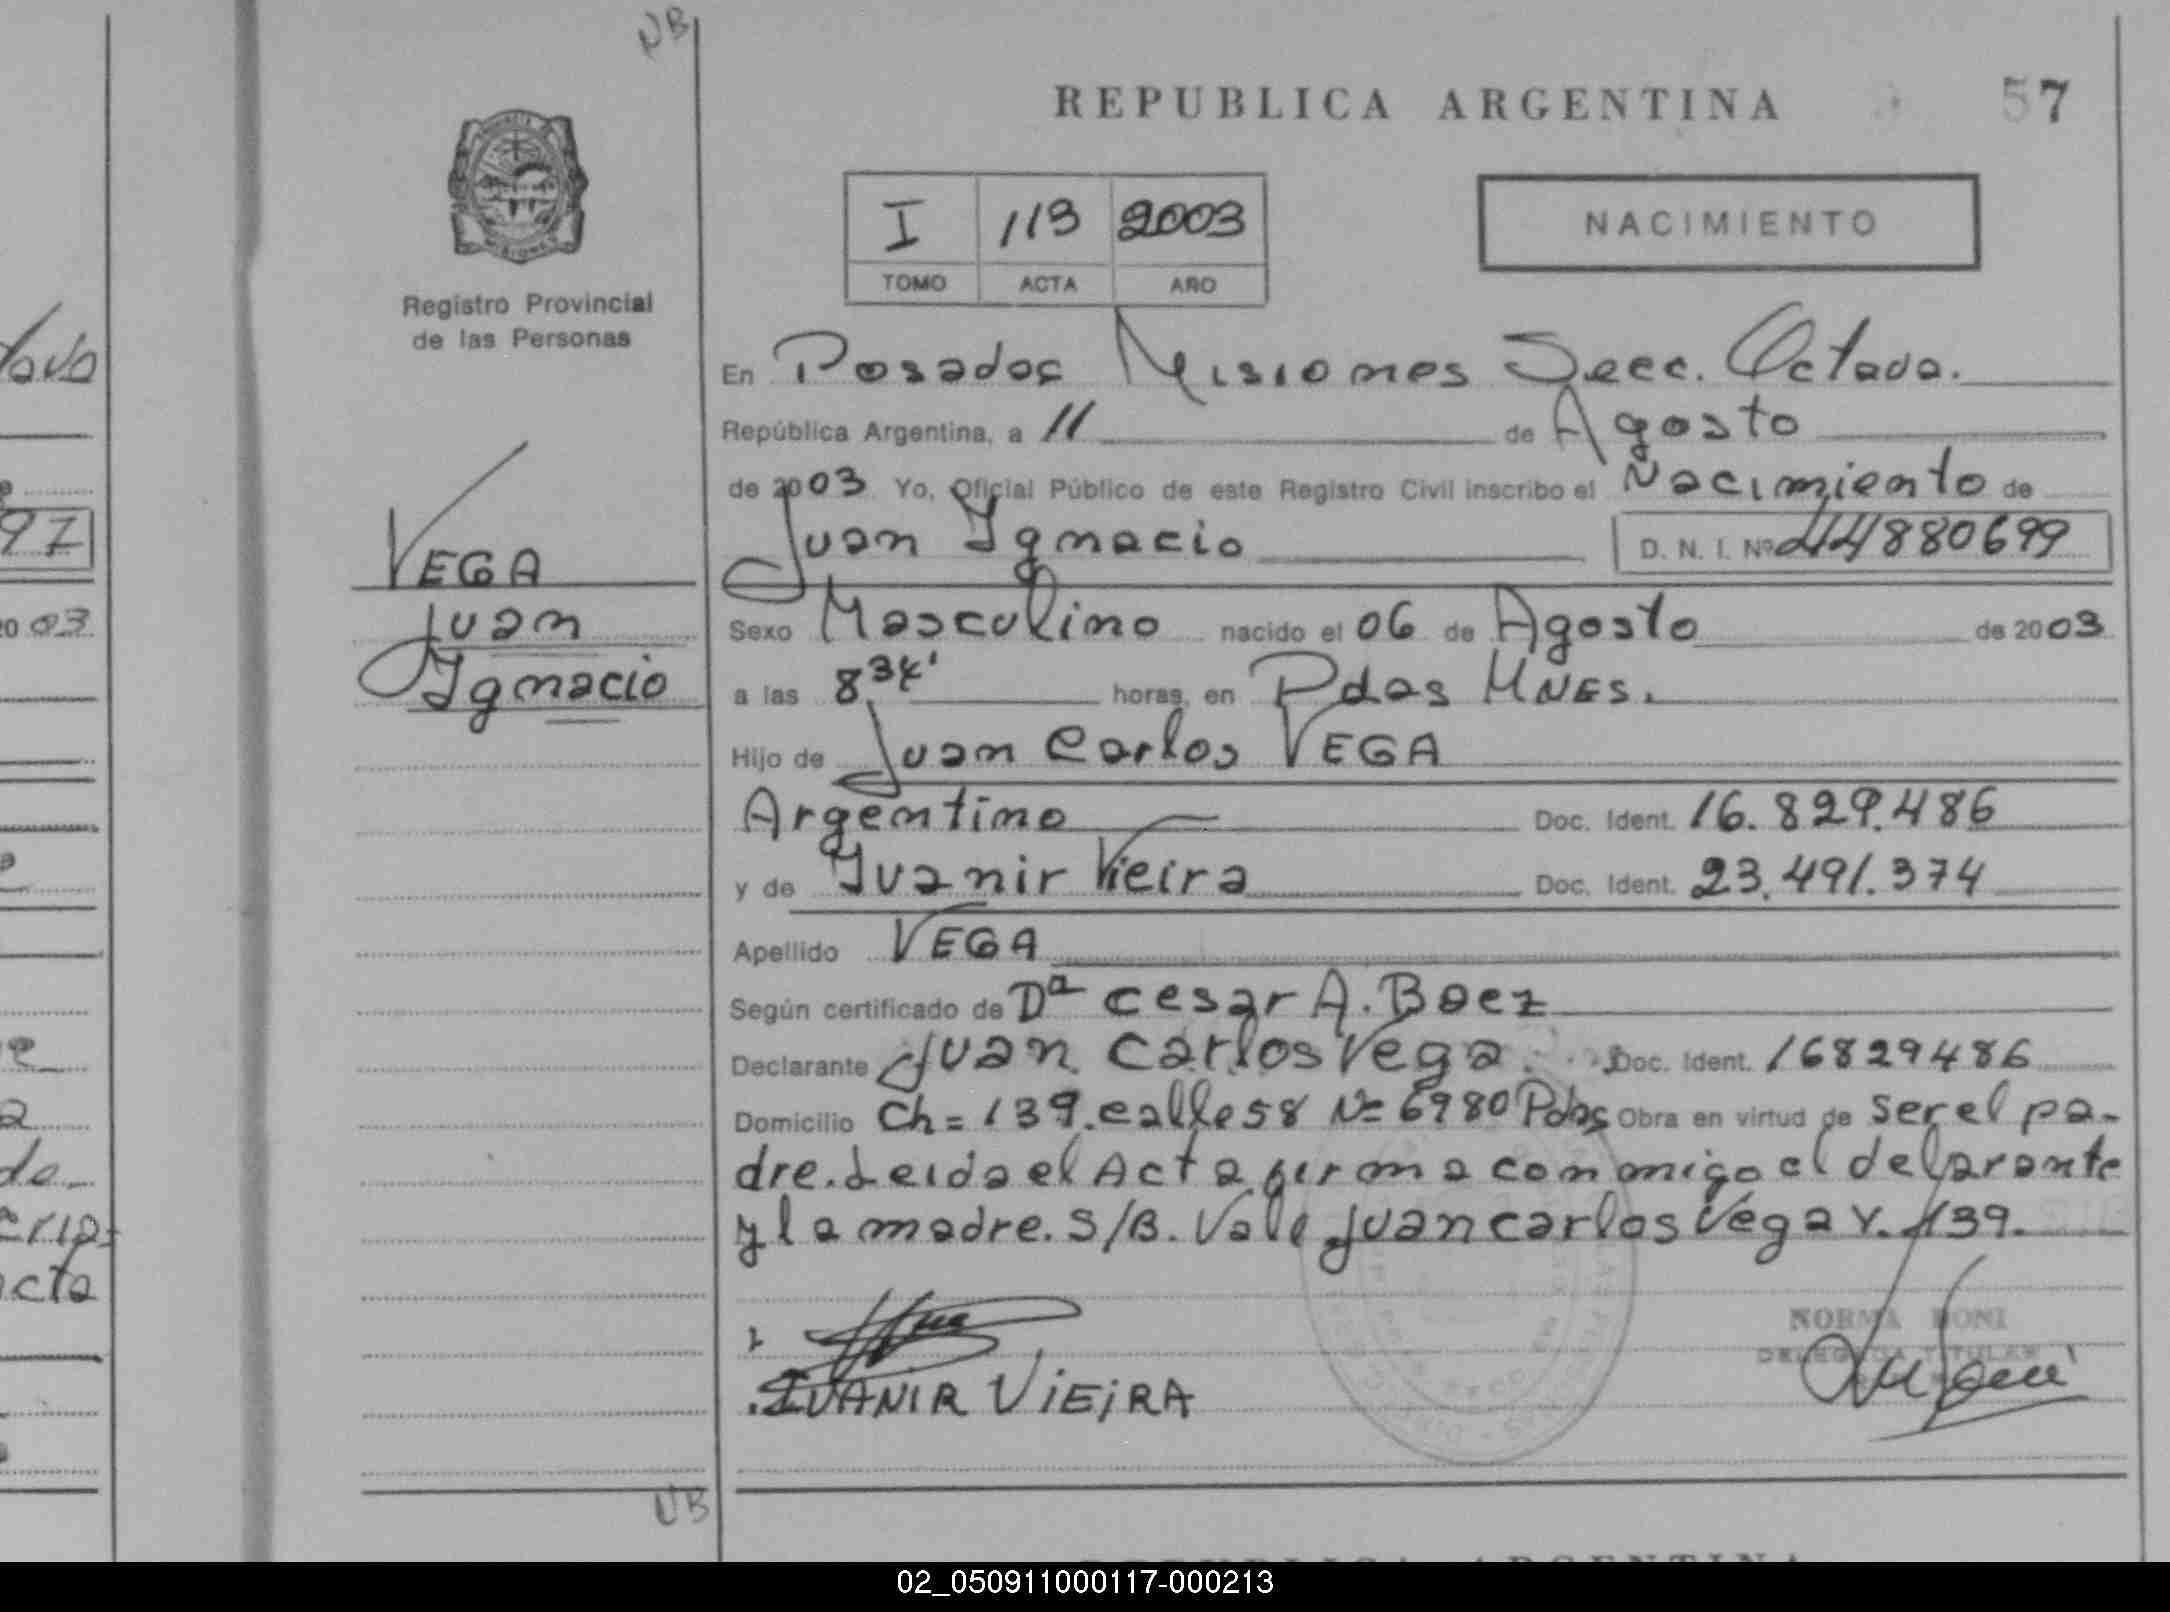 NB
REPUBLICA ARGENTINA
57
I 113 2003
TOMO ACTA AÑO
NACIMIENTO
Registro Provincial
de las Personas
En Posadas Misiones Secc. Octava.
República Argentina, a 11 de Agosto
de 2003 Yo, Oficial Público de este Registro Civil inscribo el Nacimiento de
Juan Ignacio D. N. I. Nº 44880699
VEGA
Juan
Ignacio
Sexo Masculino nacido el 06 de Agosto de 2003
a las 8.34' horas, en Pdas MNES.
Hijo de Juan Carlos VEGA
Argentino Doc. Ident. 16.829.486
y de Ivanir Vieira Doc. Ident. 23.491.374
Apellido VEGA
Según certificado de Dª Cesar A. Baez
Declarante Juan Carlos Vega Doc. Ident. 16829486
Domicilio Ch = 139. calle 58 Nº 6980 Pdas Obra en virtud de ser el pa-
dre. Leida el Acta firma conmigo el delarante
y la madre. S/B. Vale Juan carlos Vega V. 139.
NORMA BONI
DELEGADA TITULAR
IVANIR ViEiRA
NB
REPUBLICA ARGENTINA
tava
97
20 03
de
acta
02_050911000117-000213